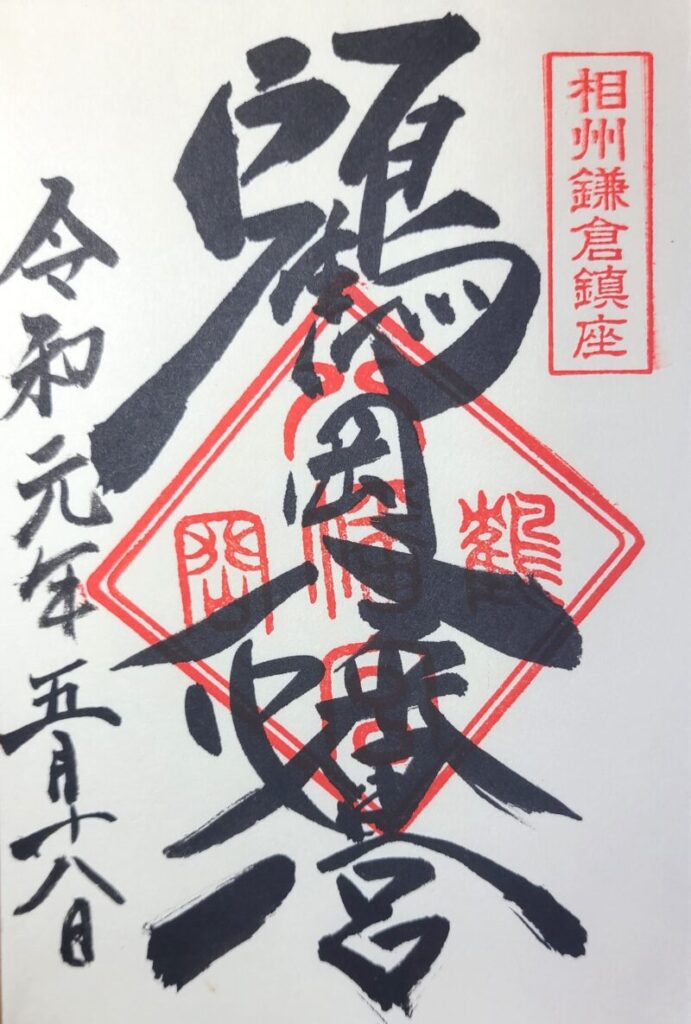 相州鎌倉鎮座
鶴岡八幡宮
令和元年五月十八日